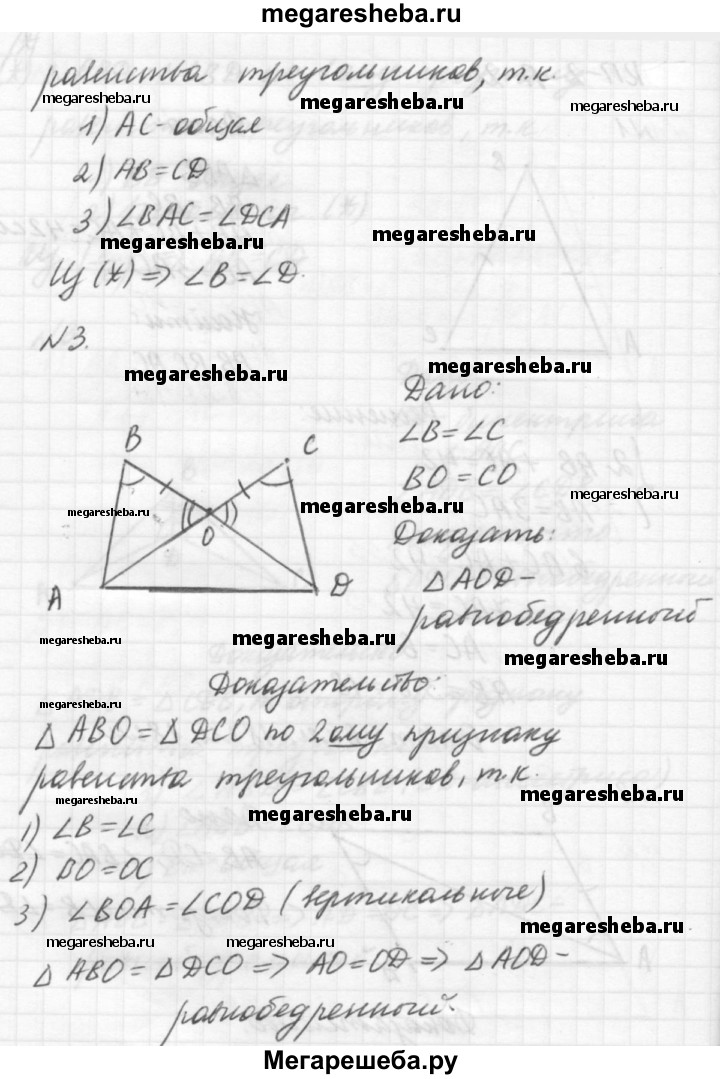 megaresheba.ru
равенства треугольников, т.к.
megaresheba.ru megaresheba.ru
1) AC-общая
2) AB=CD
3) ∠BAC=∠DCA
megaresheba.ru megaresheba.ru
Из (*) => ∠B=∠D.
N3.
megaresheba.ru megaresheba.ru
Дано:
∠B=∠C
B C
BO=CO
megaresheba.ru megaresheba.ru megaresheba.ru
O
Доказать:
△AOD-
A D
равнобедренный
megaresheba.ru megaresheba.ru megaresheba.ru
Доказательство:
megaresheba.ru
△ABO=△DCO по 2ому признаку
равенства треугольников, т.к.
megaresheba.ru megaresheba.ru megaresheba.ru
1) ∠B=∠C
2) BO=OC
3) ∠BOA=∠COD (вертикальные)
megaresheba.ru megaresheba.ru megaresheba.ru
△ABO=△DCO => AO=OD => △AOD-
равнобедренный.
megaresheba.ru megaresheba.ru
Мегарешеба.ру